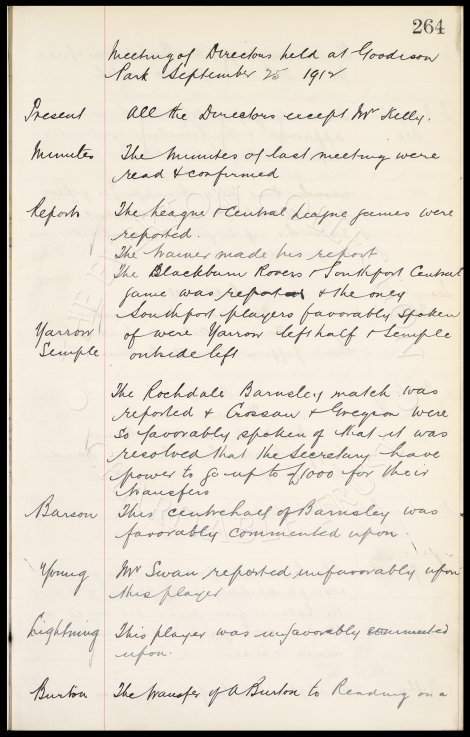 264
Meeting of Directors held at Goodison
Park September 25 1912
Present All the Directors except Mr Kelly.
Minutes The Minutes of last meeting were
read & confirmed
Reports The League & Central League games were
reported.
The trainer made his report
The Blackburn Rovers & Southport Central
game was reported & the only
Southport players favorably spoken
Yarrow of were Yarrow left half & Semple
Semple outside left
The Rochdale Barnsley match was
reported & Crossan & Gregson were
so favorably spoken of that it was
resolved that the Secretary have
power to go up to £1000 for their
transfers
Barson This centrehalf of Barnsley was
favorably commented upon.
Young Mr Swan reported unfavorably upon
this player
Lightning This player was unfavorably commented
upon.
Burton The transfer of A Burton to Reading on a